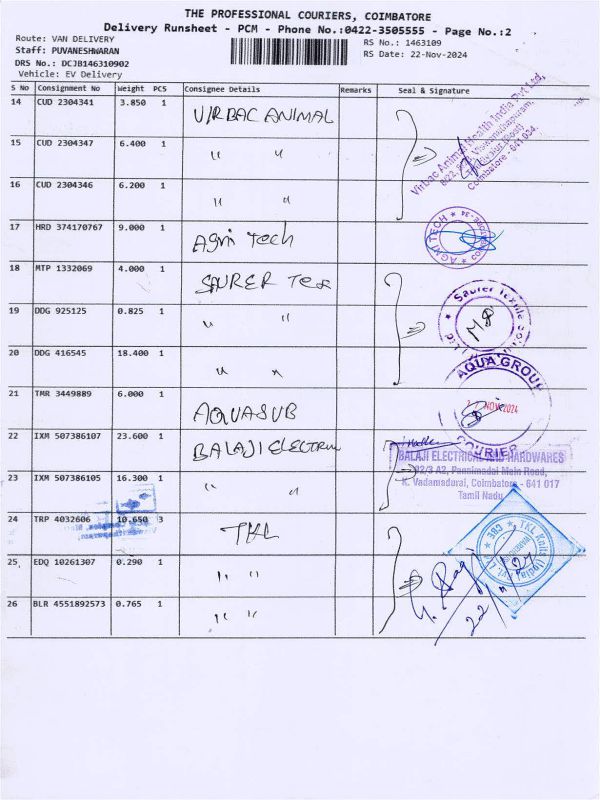 THE PROFESSIONAL COURIERS, COIMBATORE
Delivery Runsheet - PCM - Phone No.:0422-3505555 - Page No.:2
Route: VAN DELIVERY
Staff: PUVANESHWARAN
DRS No.: DCJB146310902
Vehicle: EV Delivery
RS No.: 1463109
RS Date: 22-Nov-2024
S No Consignment No Weight PCS Consignee Details Remarks Seal & Signature
14 CUD 2304341 3.850 1 VIRBAC ANIMAL
15 CUD 2304347 6.400 1 " "
16 CUD 2304346 6.200 1 " "
Virbac Animal Health India Pvt Ltd,
Coimbatore - 641 034.
17 HRD 374170767 9.000 1 Agni Tech
AGNI TECH
18 MTP 1332069 4.000 1 SAURER Tex
19 DDG 925125 0.825 1 " "
20 DDG 416545 18.400 1 " "
Saurer Textile
21 TMR 3449889 6.000 1 AQUASUB
AQUA GROUP
NOV 2024
COURIER
22 IXM 507386107 23.600 1 BALAJI ELECTRICAL
23 IXM 507386105 16.300 1 " "
BALAJI ELECTRICAL AND HARDWARES
02/3 A2, Pannimadai Main Road,
K. Vadamadurai, Coimbatore - 641 017
Tamil Nadu
24 TRP 4032606 10.650 3 TKL
25 EDQ 10261307 0.290 1 " "
26 BLR 4551892573 0.765 1 " "
TKL Knits (India) Pvt. Ltd
CBE